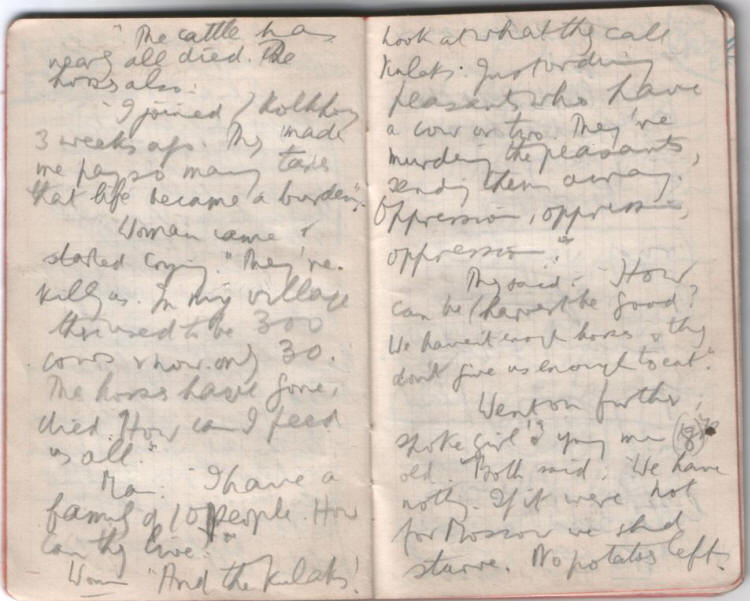 "The cattle has
nearly all died. The
horses also.
"I joined / Kolkhoz
3 weeks ago. They made
me pay so many taxes
that life became a burden".
Woman came &
started crying. "They're
killing us. In my village
there used to be 300
cows & now only 30.
The horses have gone,
died. How can I feed
us all."
Man. "I have a
family of 10 people. How
can they live."
Woman "And the Kulaks!
Look at what they call
Kulaks. Just ordinary
peasants who have
a cow or two. They're
murdering the peasants,
sending them away.
Oppression, oppression,
oppression."
They said: "How
can be / harvest be good?
We haven't enough horses & they
don't give us enough to eat."
Went on further;
spoke girl & young man (18)
old. "Both said: "We have
nothing. If it were not
for Moscow we should
starve. No potatoes left.